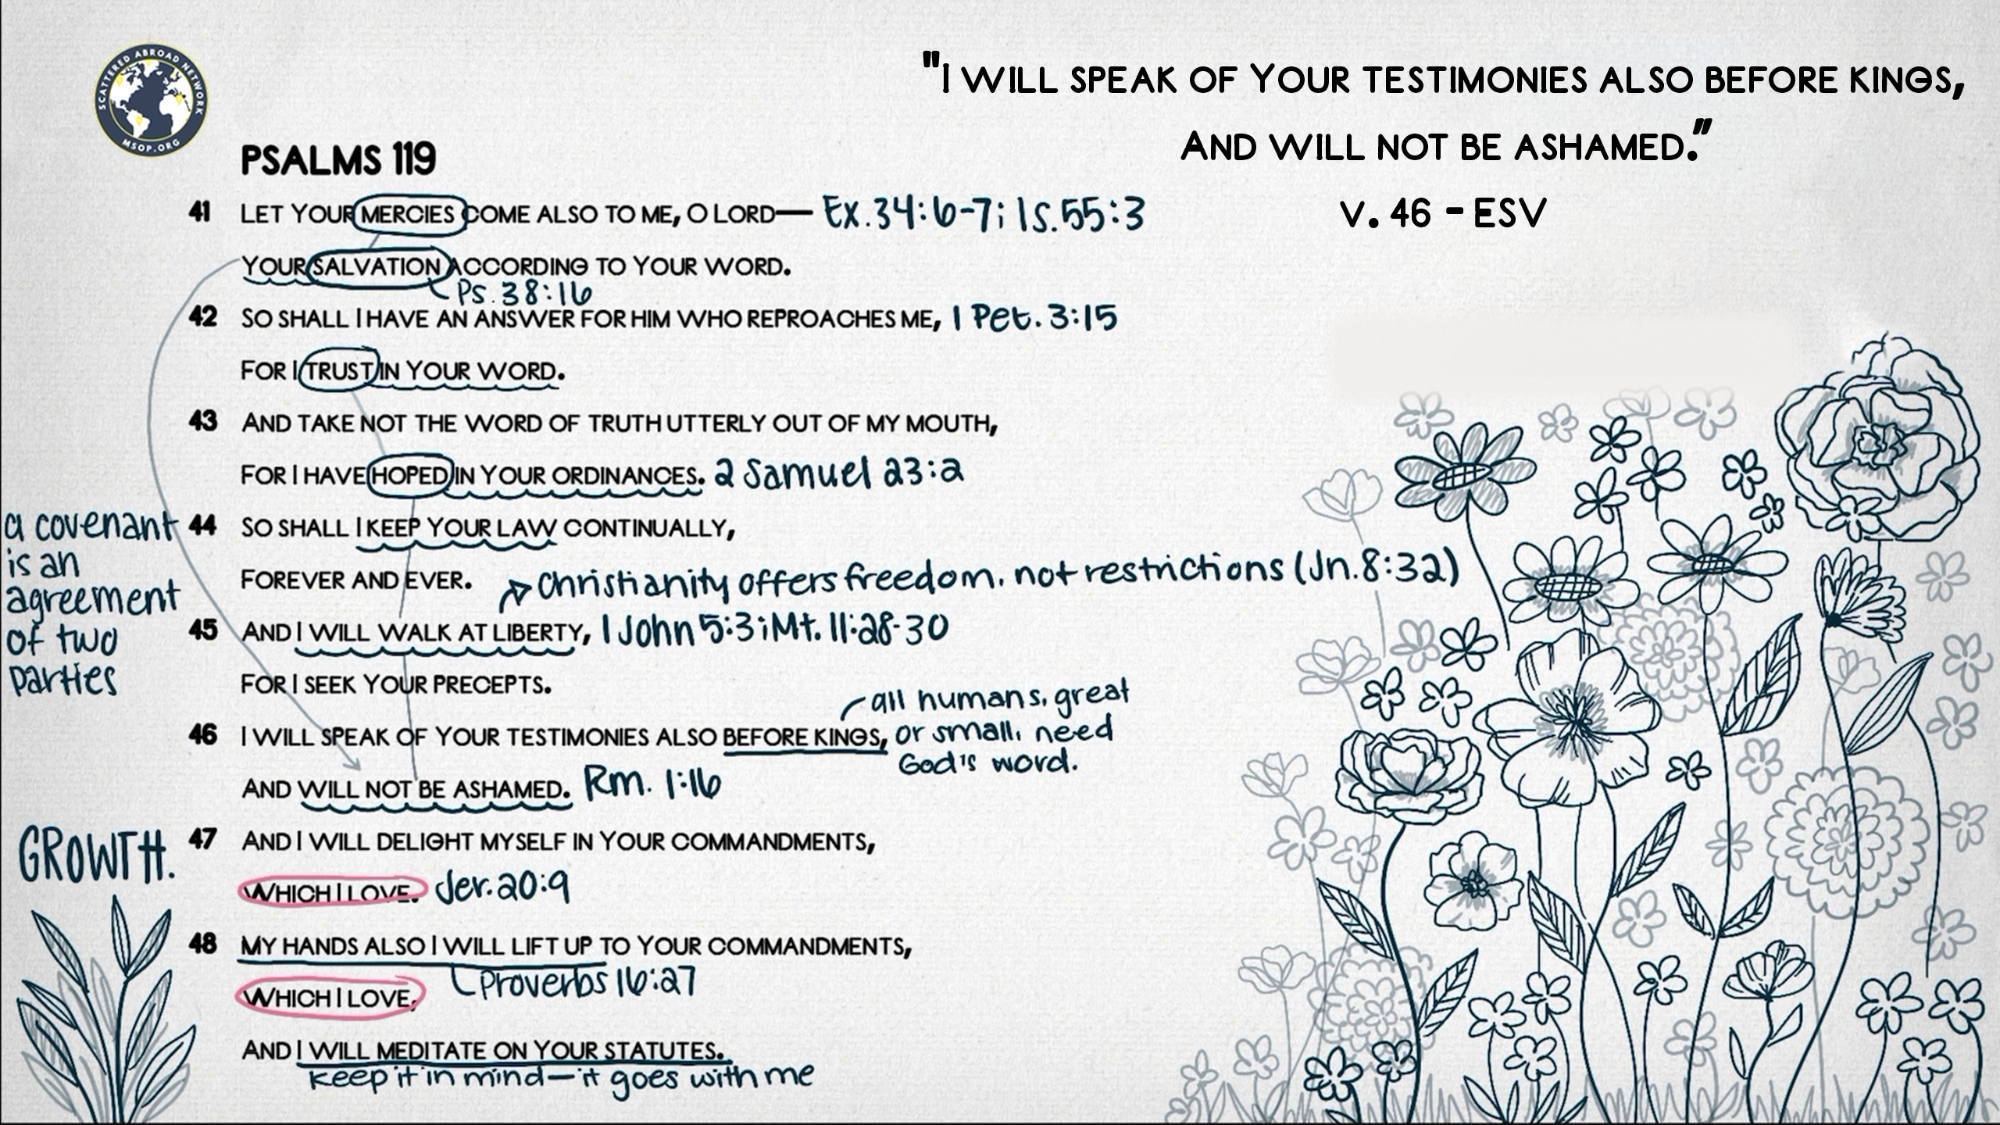 SCATTERED ABROAD NETWORK
MSOP.ORG
"I WILL SPEAK OF YOUR TESTIMONIES ALSO BEFORE KINGS,
AND WILL NOT BE ASHAMED."
V. 46 - ESV
PSALMS 119
41 LET YOUR MERCIES COME ALSO TO ME, O LORD— Ex.34:6-7; Is.55:3
YOUR SALVATION ACCORDING TO YOUR WORD.
Ps.38:16
42 SO SHALL I HAVE AN ANSWER FOR HIM WHO REPROACHES ME, 1 Pet. 3:15
FOR I TRUST IN YOUR WORD.
43 AND TAKE NOT THE WORD OF TRUTH UTTERLY OUT OF MY MOUTH,
FOR I HAVE HOPED IN YOUR ORDINANCES. 2 Samuel 23:2
44 SO SHALL I KEEP YOUR LAW CONTINUALLY,
FOREVER AND EVER. Christianity offers freedom, not restrictions (Jn.8:32)
a covenant
is an
agreement
of two
parties
45 AND I WILL WALK AT LIBERTY, 1 John 5:3; Mt. 11:28-30
FOR I SEEK YOUR PRECEPTS.
46 I WILL SPEAK OF YOUR TESTIMONIES ALSO BEFORE KINGS,
all humans, great
or small, need
God's word.
AND WILL NOT BE ASHAMED. Rm. 1:16
GROWTH.
47 AND I WILL DELIGHT MYSELF IN YOUR COMMANDMENTS,
WHICH I LOVE. Jer.20:9
48 MY HANDS ALSO I WILL LIFT UP TO YOUR COMMANDMENTS,
Proverbs 16:27
WHICH I LOVE,
AND I WILL MEDITATE ON YOUR STATUTES.
keep it in mind—it goes with me